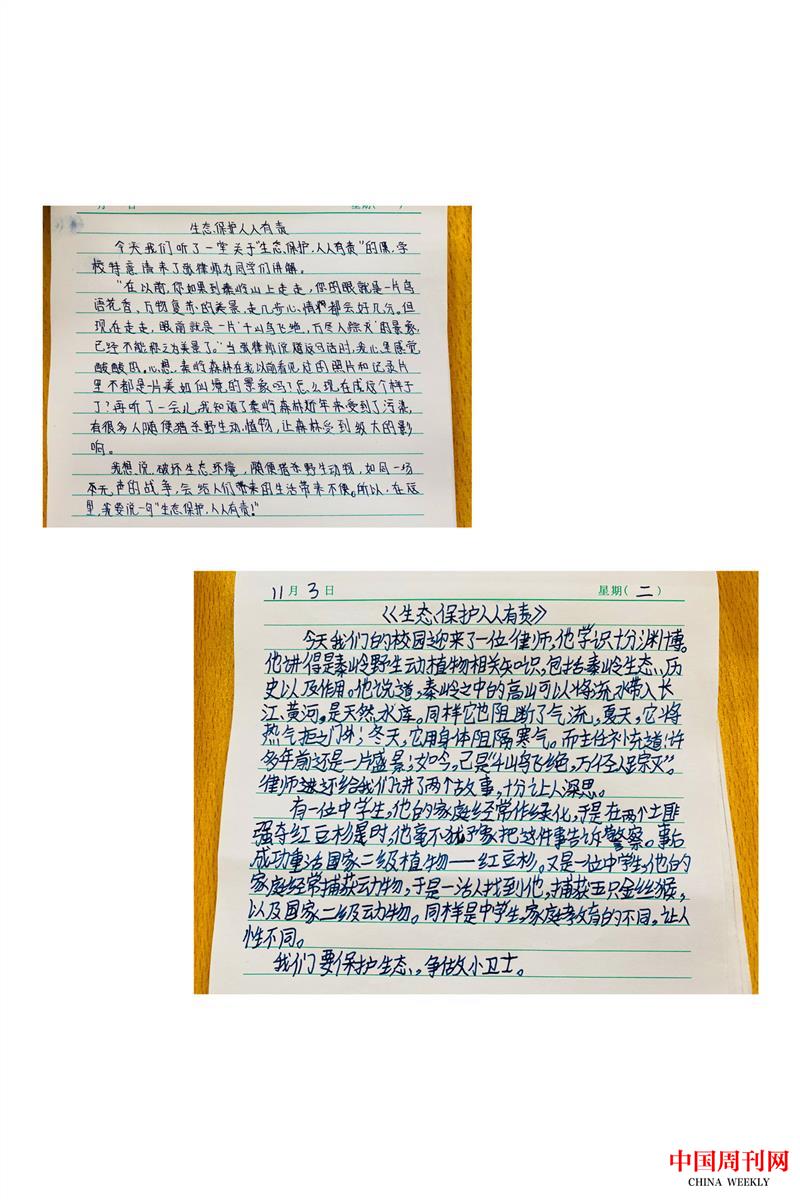 月 日 星期( )
生态保护人人有责
今天我们听了一堂关于“生态保护，人人有责”的课，学
校特意请来了张律师为同学们讲解。
“在以前，你如果到秦岭山上走走，你的眼就是一片鸟
语花香、万物复苏的美景，走几步心情都会好几分。但
现在走走，眼前就是一片‘千山鸟飞绝，万径人踪灭’的景象，
已经不能称之为美景了。”当张律师说道这句话时，我心里感觉
酸酸的。心想，秦岭森林在我以前看见过的照片和记录片
里不都是一片美如仙境的景象吗？怎么现在成这个样子
了？再听了一会儿，我知道了秦岭森林近年来受到了污染，
有很多人随便猎杀野生动植物，让森林受到极大的影
响。
我想说，破坏生态环境，随便猎杀野生动物，如同一场
无声的战争，会给人们带来的生活带来不便。所以，在这
里，我要说一句“生态保护，人人有责！”
11月3日 星期(二)
《生态保护人人有责》
今天我们的校园迎来了一位律师，他学识十分渊博。
他讲得是秦岭野生动植物相关知识，包括秦岭生态、历
史以及作用。他说道，秦岭之中的高山可以将流水带入长
江、黄河，是天然水库。同样它也阻断了气流，夏天，它将
热气拒之门外；冬天，它用身体阻隔寒气。而主任补充道：许
多年前还是一片盛景；如今，已是“千山鸟飞绝，万径人踪灭”。
律师还给我们讲了两个故事，十分让人深思。
有一位中学生，他的家庭经常作绿化，于是在两个土匪
强夺红豆杉是时，他毫不犹予家把这件事告诉警察。事后
成功重活国家二级植物——红豆杉。又是一位中学生，他的
家庭经常捕获动物，于是一活人找到他，捕获五只金丝猴，
以及国家二级动物。同样是中学生，家庭教育的不同，让人
性不同。
我们要保护生态，争做小卫士。
中国周刊网
CHINA WEEKLY